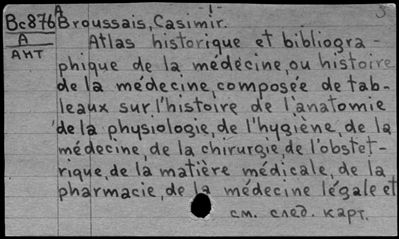 Bc876 Broussais, Casimir.
A
АНТ
Atlas historique et bibliogra-
phique de la médecine, ou histoire
de la médecine, composée de tab-
leaux sur l'histoire de l'anatomie
de la physiologie, de l'hygiène, de la
médecine, de la chirurgie, de l'obstet-
rique, de la matière médicale, de la
pharmacie, de la médecine légale et
см. след. карт.